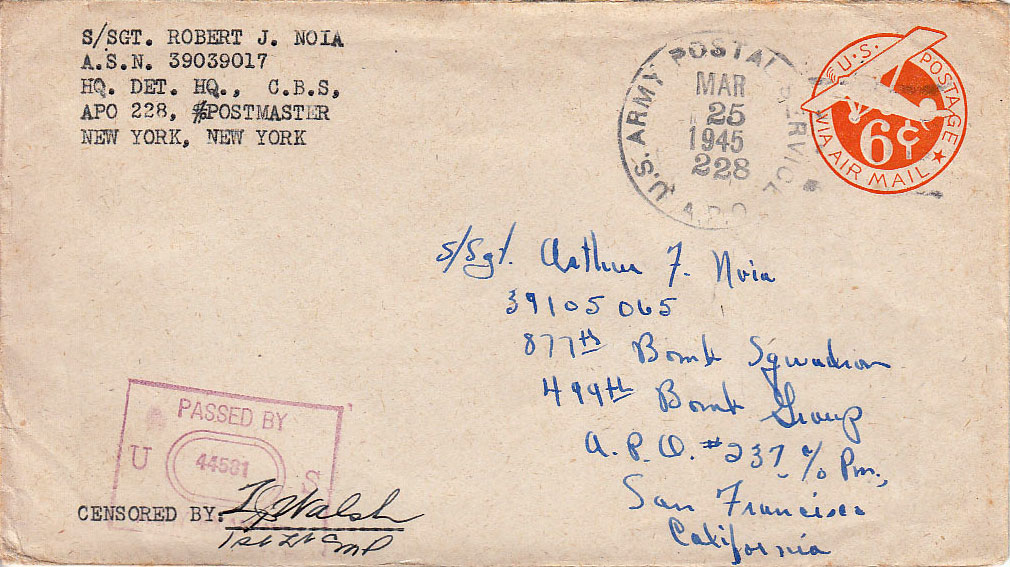 S/SGT. ROBERT J. NOIA
A.S.N. 39039017
HQ. DET. HQ., C.B.S,
APO 228, %POSTMASTER
NEW YORK, NEW YORK
U.S. ARMY POSTAL SERVICE
MAR
25
1945
228
A.P.O.
U.S. POSTAGE
6¢
VIA AIR MAIL
S/Sgt. Arthur F. Noia
39105065
877th Bomb Squadron
499th Bomb Group
A.P.O. #237 c/o Pm.,
San Francisco
California
PASSED BY
U 44501 S
CENSORED BY: Walsh
1st Lt CMP